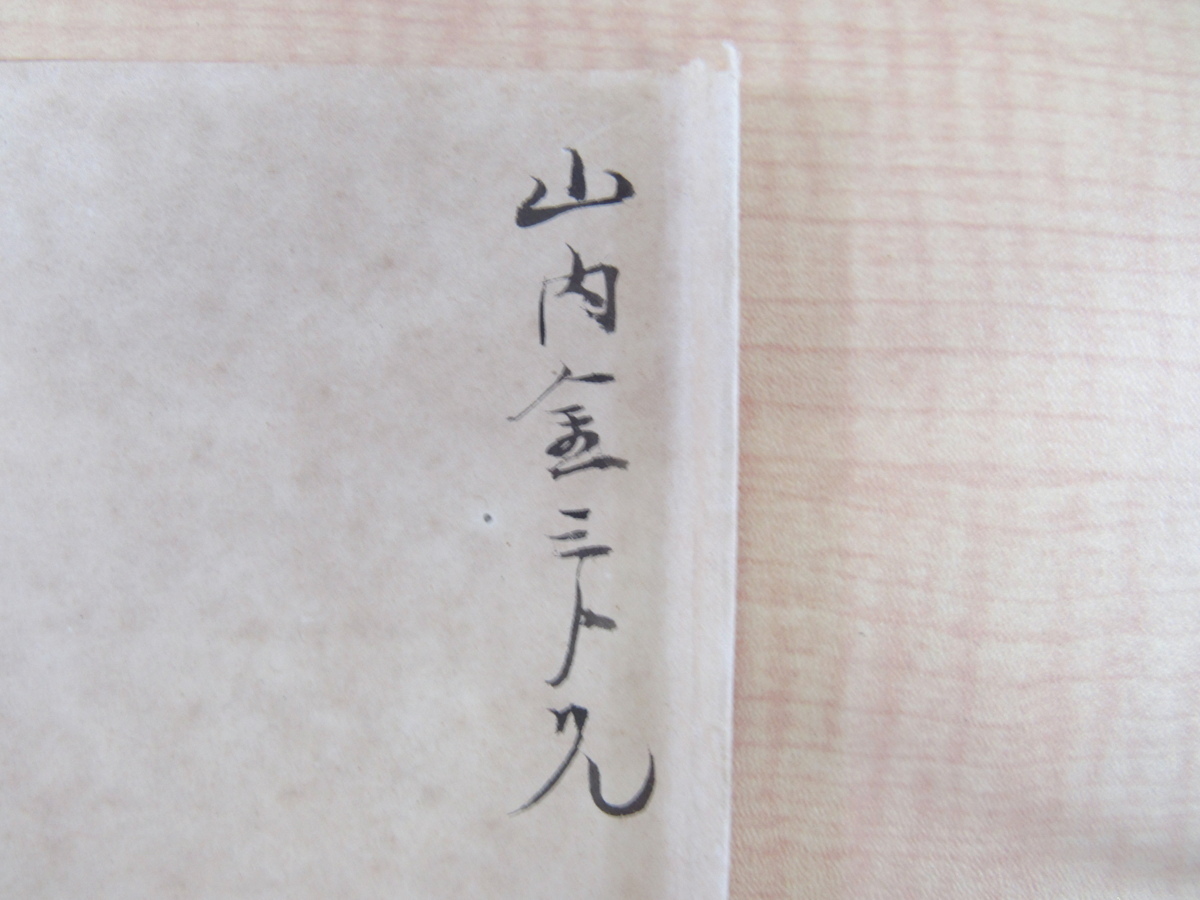 山内金三郎兄